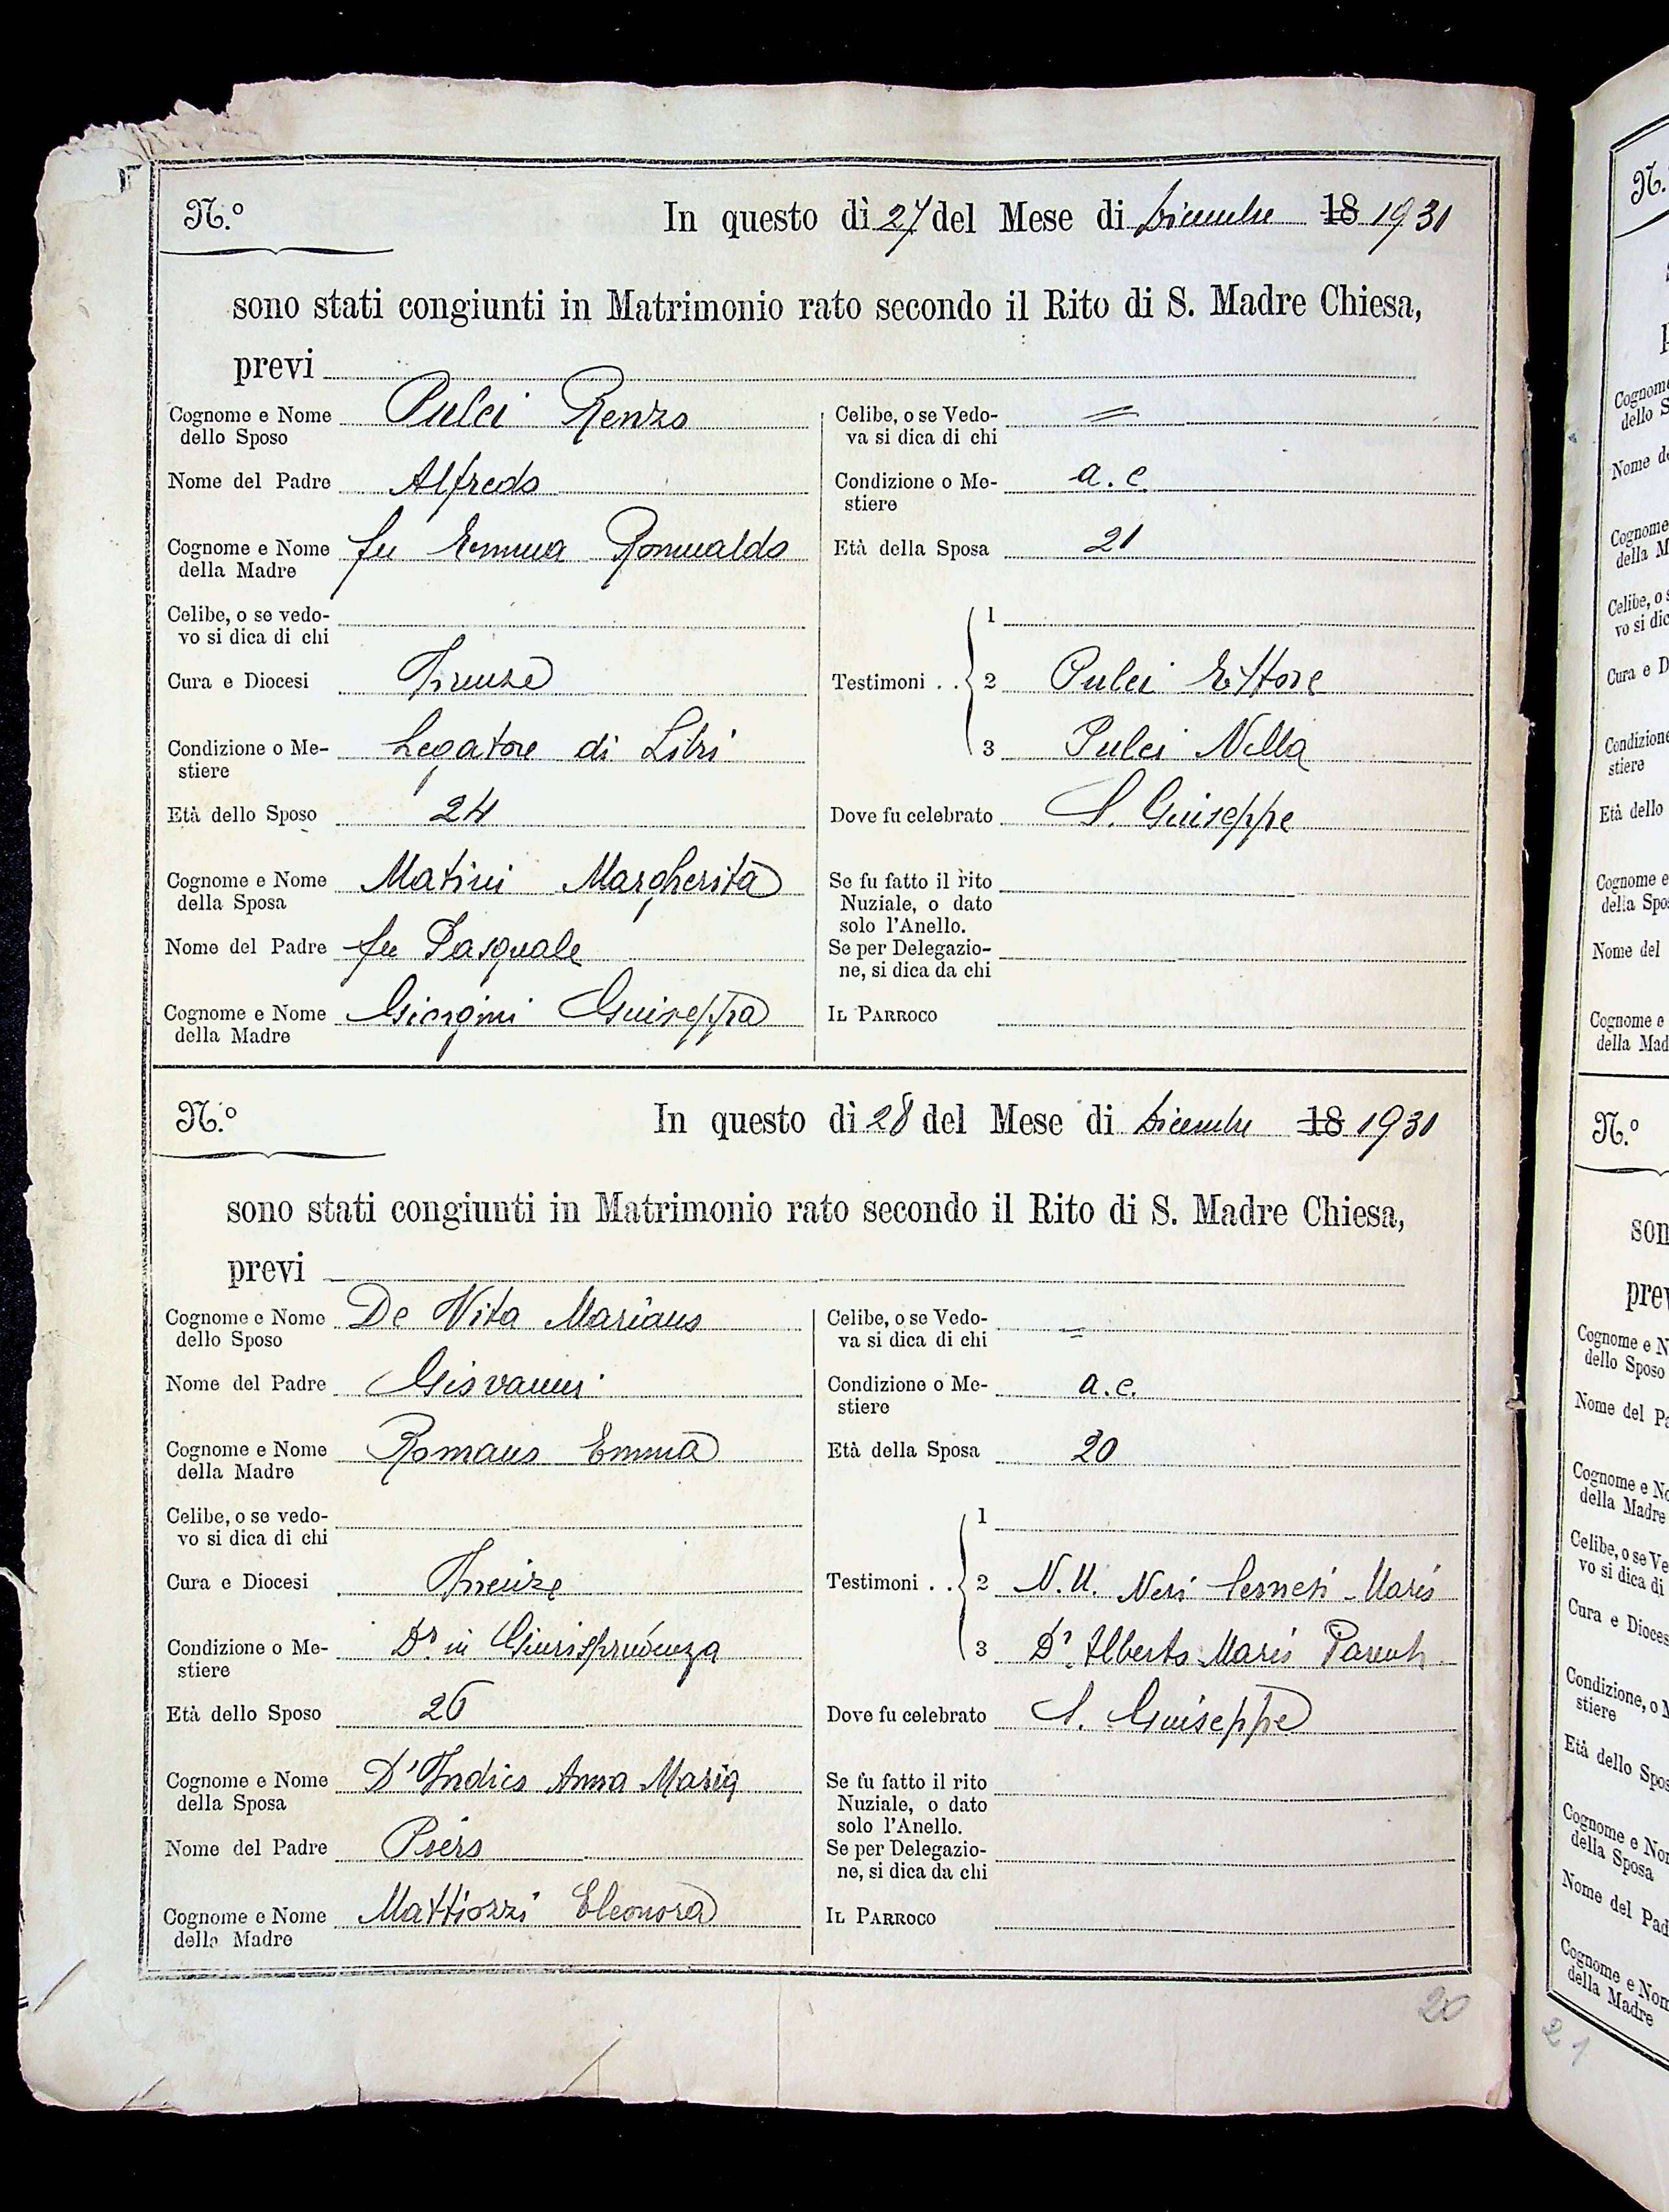 N.º
In questo dì 27 del Mese di Dicembre 18 1931
sono stati congiunti in Matrimonio rato secondo il Rito di S. Madre Chiesa,
previ
Cognome e Nome dello Sposo Pulci Renzo
Nome del Padre Alfredo
Cognome e Nome della Madre fu Emma Romualdo
Celibe, o se vedovo si dica di chi
Cura e Diocesi Firenze
Condizione o Mestiere Legatore di Libri
Età dello Sposo 24
Cognome e Nome della Sposa Matini Margherita
Nome del Padre fu Pasquale
Cognome e Nome della Madre Giorgini Giuseppa
Celibe, o se Vedova si dica di chi =
Condizione o Mestiere a.c.
Età della Sposa 21
Testimoni . . 1
2 Pulci Ettore
3 Pulci Nella
Dove fu celebrato S. Giuseppe
Se fu fatto il rito Nuziale, o dato solo l'Anello.
Se per Delegazione, si dica da chi
IL PARROCO
N.º
In questo dì 28 del Mese di Dicembre 18 1931
sono stati congiunti in Matrimonio rato secondo il Rito di S. Madre Chiesa,
previ
Cognome e Nome dello Sposo De Vita Mariano
Nome del Padre Giovanni
Cognome e Nome della Madre Romano Emma
Celibe, o se vedovo si dica di chi
Cura e Diocesi Firenze
Condizione o Mestiere Dr. in Giurisprudenza
Età dello Sposo 26
Cognome e Nome della Sposa D'Indico Anna Maria
Nome del Padre Piero
Cognome e Nome della Madre Mattiozzi Eleonora
Celibe, o se Vedova si dica di chi =
Condizione o Mestiere a.c.
Età della Sposa 20
Testimoni . . 1
2 N.U. Neri Mario
3 Dr. Alberto Mario
Dove fu celebrato S. Giuseppe
Se fu fatto il rito Nuziale, o dato solo l'Anello.
Se per Delegazione, si dica da chi
IL PARROCO
20
21